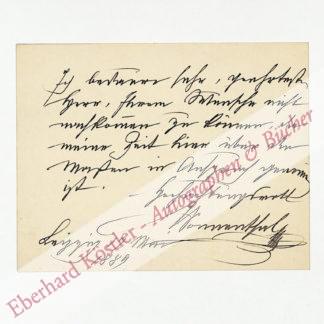 Ich bedaure sehr, geehrtester
Herr, Ihrem Wunsche nicht
nachkommen zu können, da
meine Zeit hier über die
Maßen in Anspruch genommen
ist.
Hochachtungsvoll
Sonnenthal
Leipzig Mai
1889
Eberhard Köstler - Autographen & Bücher